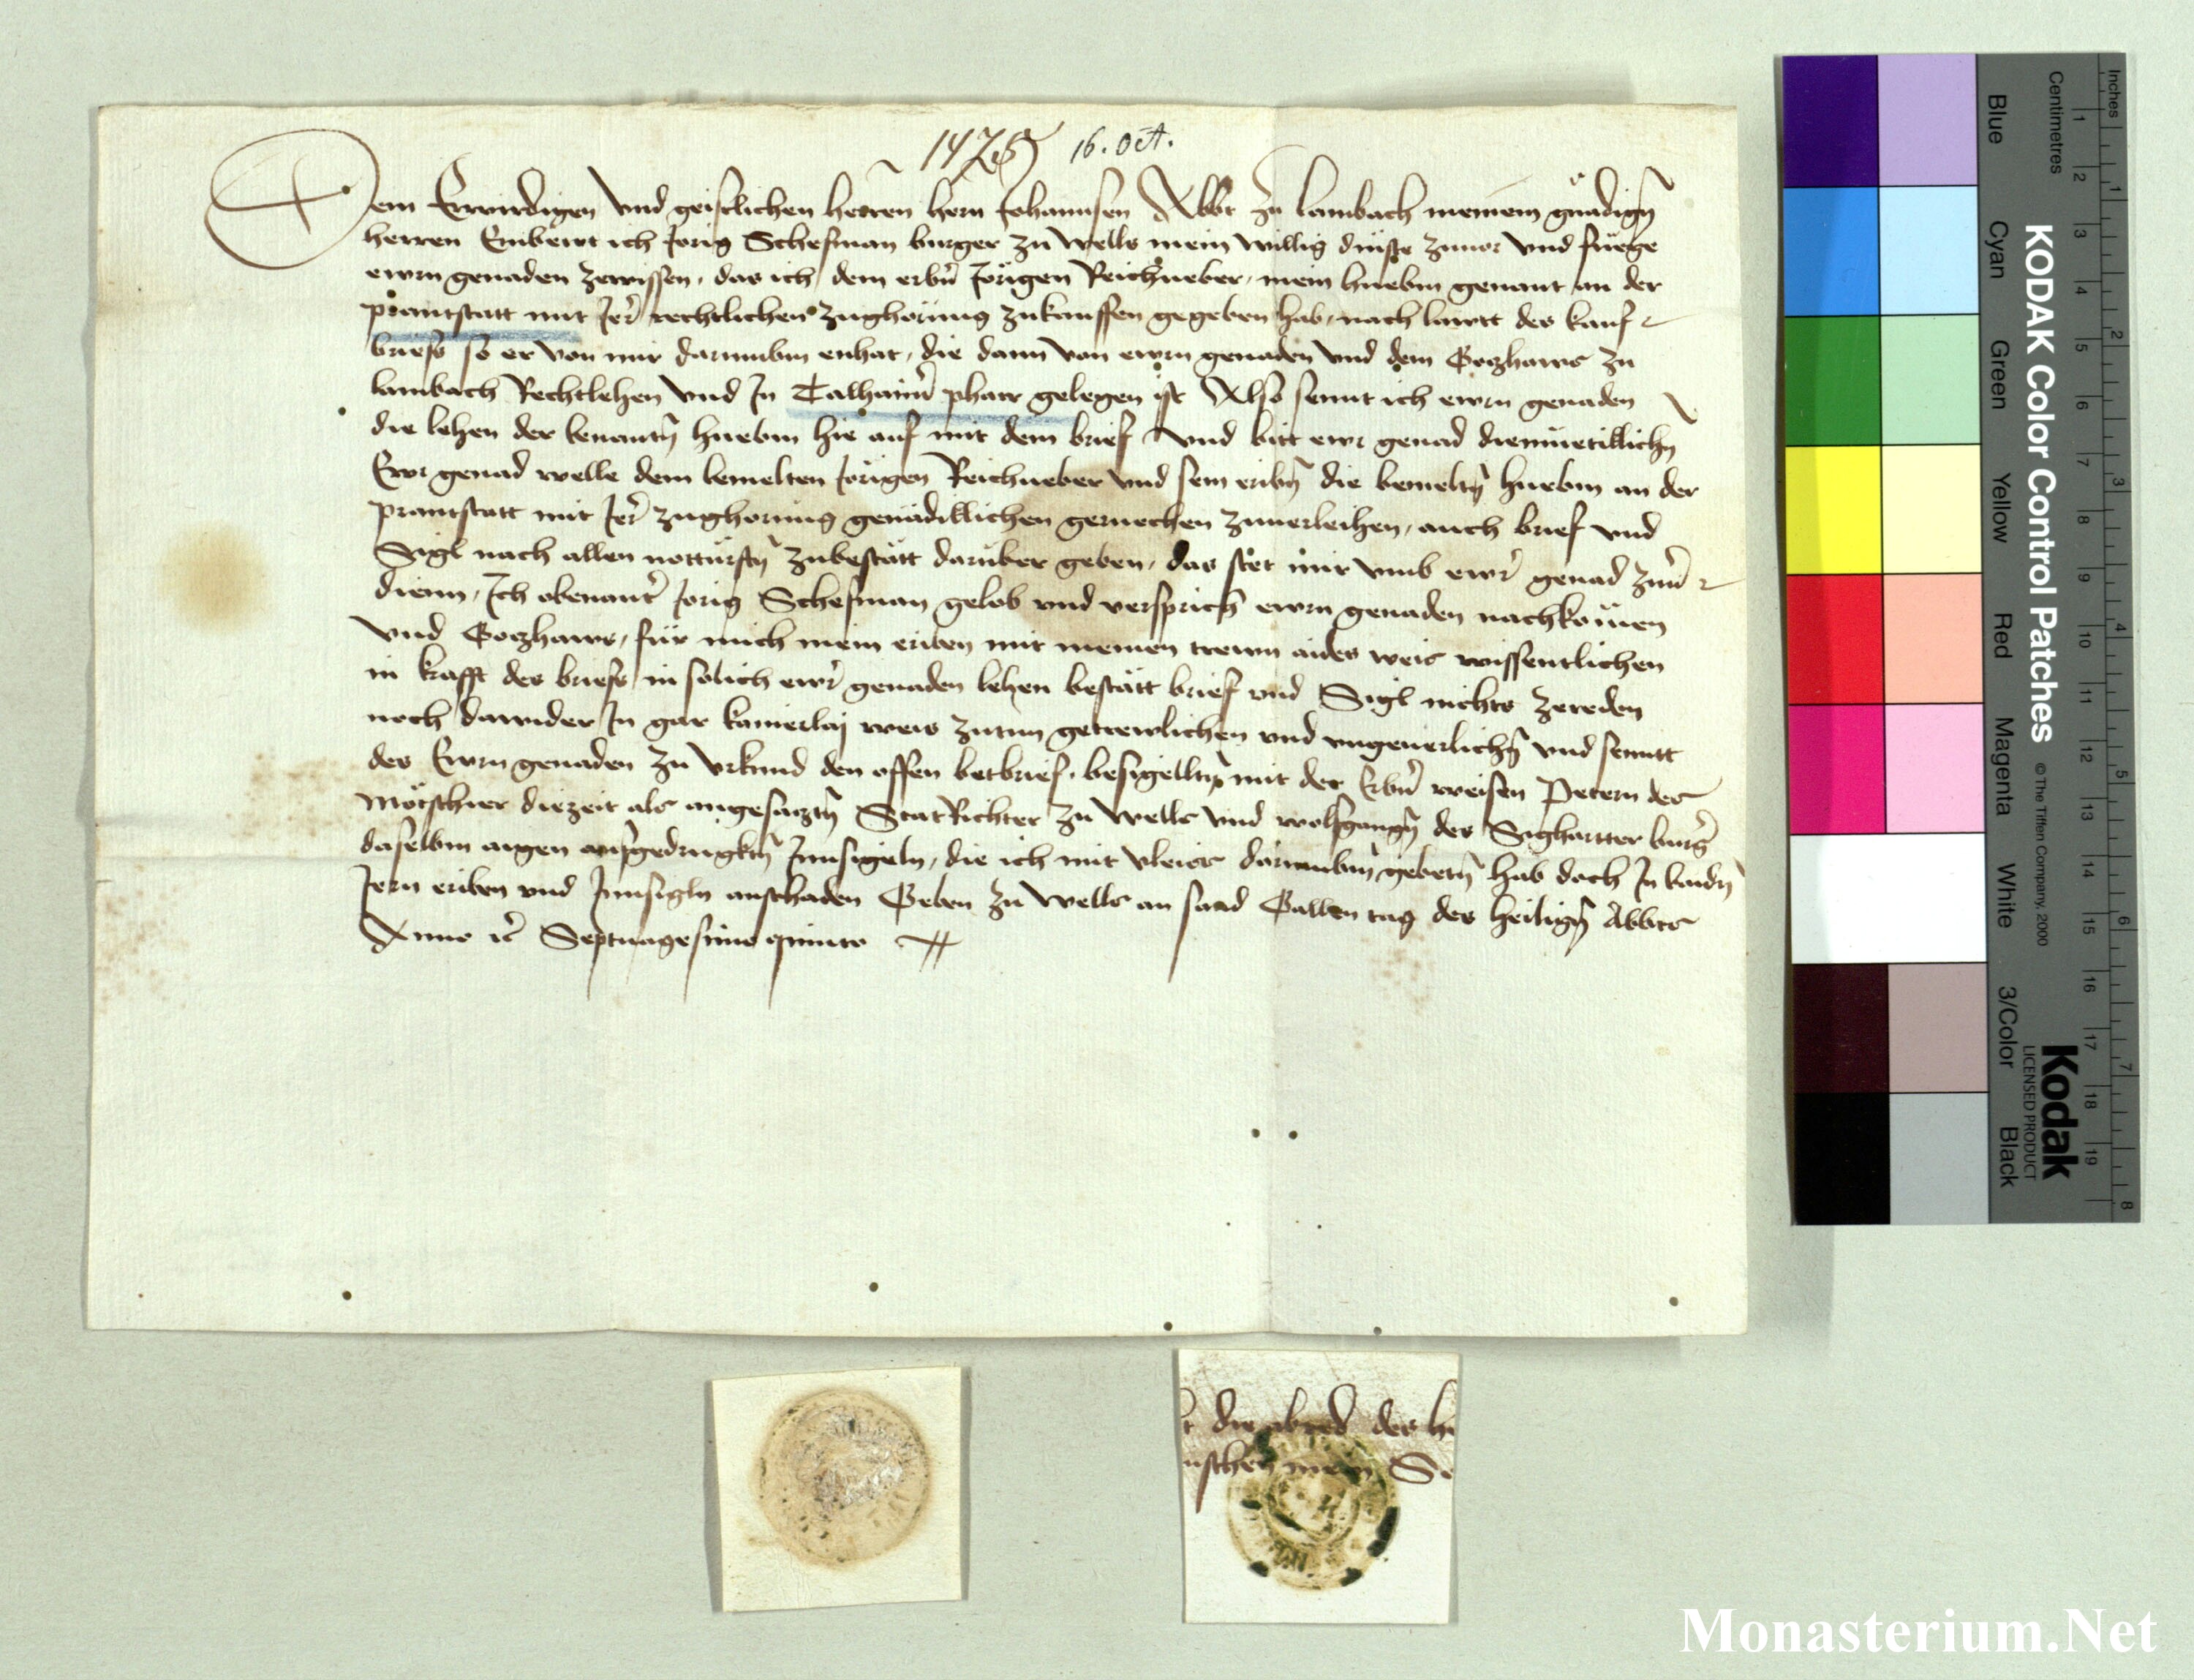 1475 16. Oct.
Dem Erwirdigen Vnd geistlichen herren hern Johannsen Abbt zu lambach meinem gnädign̄
herren Embewt ich Jorig Schefman burger zu wells mein willig dinste zuuor Vnd füege
ewrn genaden zewissen, das ich dem erbn̄ Jörigen Reichueber, mein huebm genant an der
prantstatt mit Jer̄ rechtlichen zughörung zukauffen gegeben hab, nach lawtt des kauf
briefs so er von mir darumbm enhat, die dann von ewrn genaden Vnd dem Gozhaws zu
lambach Rechtlehen Vnd In Talhaimer̄ pharr gelegen ist Also sennt ich ewrn genaden
die lehen der benantn̄ huebm hie auf mit dem brief Vnd bitt ewr genad diemüetillichn̄
Ewr genad welle dem bemelten Jörigen Reichueber Vnd sein eribn̄ die bemeltn̄ huebm an der
prantstatt mit Jer̄ zughorung genädillichen geruechen zuuerleihen, auch brief vnd
Sigl nach allen notturftn̄ zubestätt darüber geben, das stet mir vmb ewr̄ genad zuu̅
dienn, Ich obenantr̄ Jorig Schefman gelob vnd versprich ewrn genaden nachkömen
Vnd Gozhaws, für mich mein eriben mit meinen trewn aides weis wissentlichen
in krafft des briefs in solich ewr̄ genaden lehen bestätt brief vnd Sigl nichts zereden
noch dawider In gar kainerlaj weis zutun getrewlichen vnd vngeuerlichn̄ vnd senntt
des Ewrn genaden zu Vrkund den offen betbrief, besigelltn̄ mit der Erbn̄ weisen Petern des
Mötschier diezeit als angesaztn̄ StatRichter zu wells Vnd wolfgangn̄ des Sighartter burḡ
daselbm aigen aufgedrugktn̄ Innsigeln, die ich mit vleiss darumbm gebetn̄ hab doch In baidn̄
Jern eriben vnd Innsigln anschaden Geben zu wells an sand Gallen tag des heilign̄ Abbts
Anno rc̄ Septuagesimo quinto
die abred des he
uschen mein Se
Inches
Centimetres
KODAK Color Control Patches
© The Tiffen Company, 2000
Kodak
LICENSED PRODUCT
Blue
Cyan
Green
Yellow
Red
Magenta
White
3/Color
Black
1 2 3 4 5 6 7 8 9 10 11 12 13 14 15 16 17 18 19
1 2 3 4 5 6 7 8
Monasterium.Net